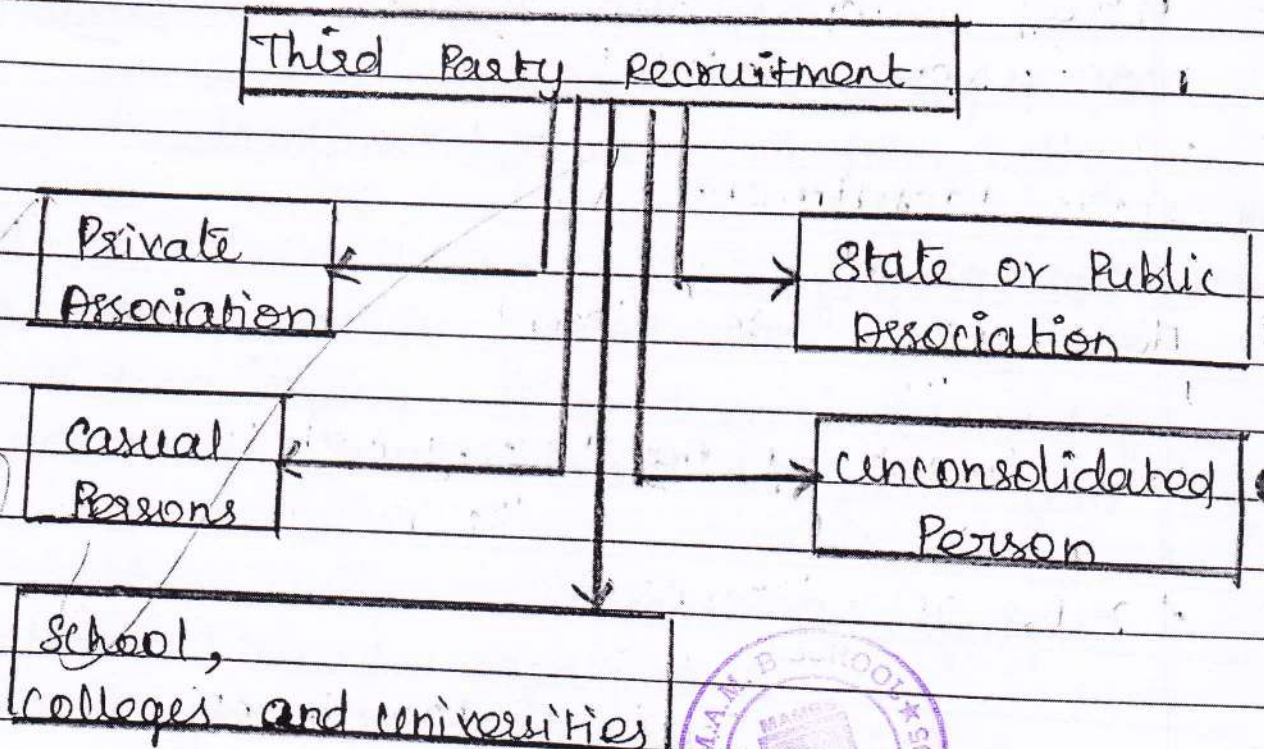 Third Party Recruitment
Private
Association
State or Public
Association
Casual
Persons
Unconsolidated
Person
School,
Colleges and Universities
M.A.M. B SCHOOL